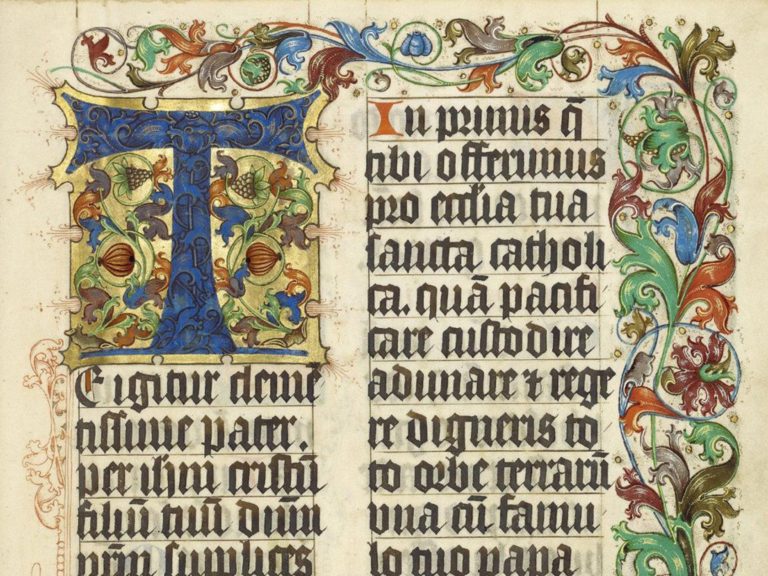 T
E igitur clemē
tissime pater.
per ihm̄ cristū
filiū tuū dn̄m
nr̄m supplices
In primis q̄
tibi offerimus
pro ecclīa tua
sancta catholi
ca. quā pacifi
care custodire
adunare ⁊ rege
re digneris to
to orbe terrarū
vna cū famu
lo tuo papa